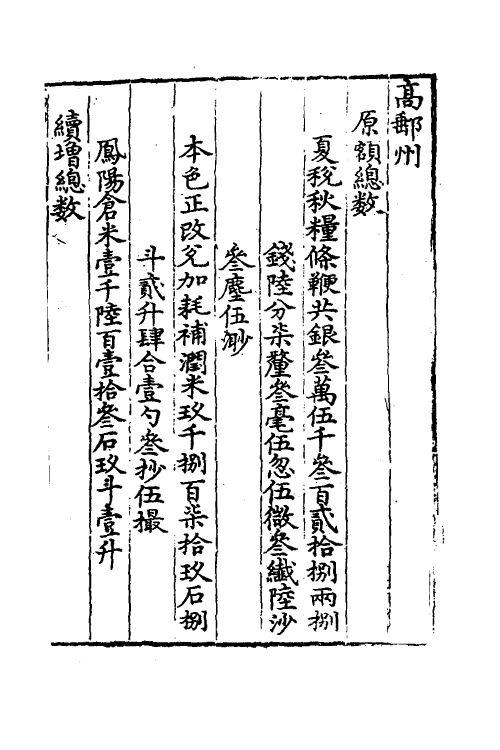 高郵州
原額總數
夏稅秋糧條鞭共銀叄萬伍千叄百貳拾捌兩捌
錢陸分柒釐叄毫伍忽伍微叄纖陸沙
叄塵伍渺
本色正改兌加耗補潤米玖千捌百柒拾玖石捌
斗貳升肆合壹勺叄抄伍撮
鳳陽倉米壹千陸百壹拾叄石玖斗壹升
續增總數